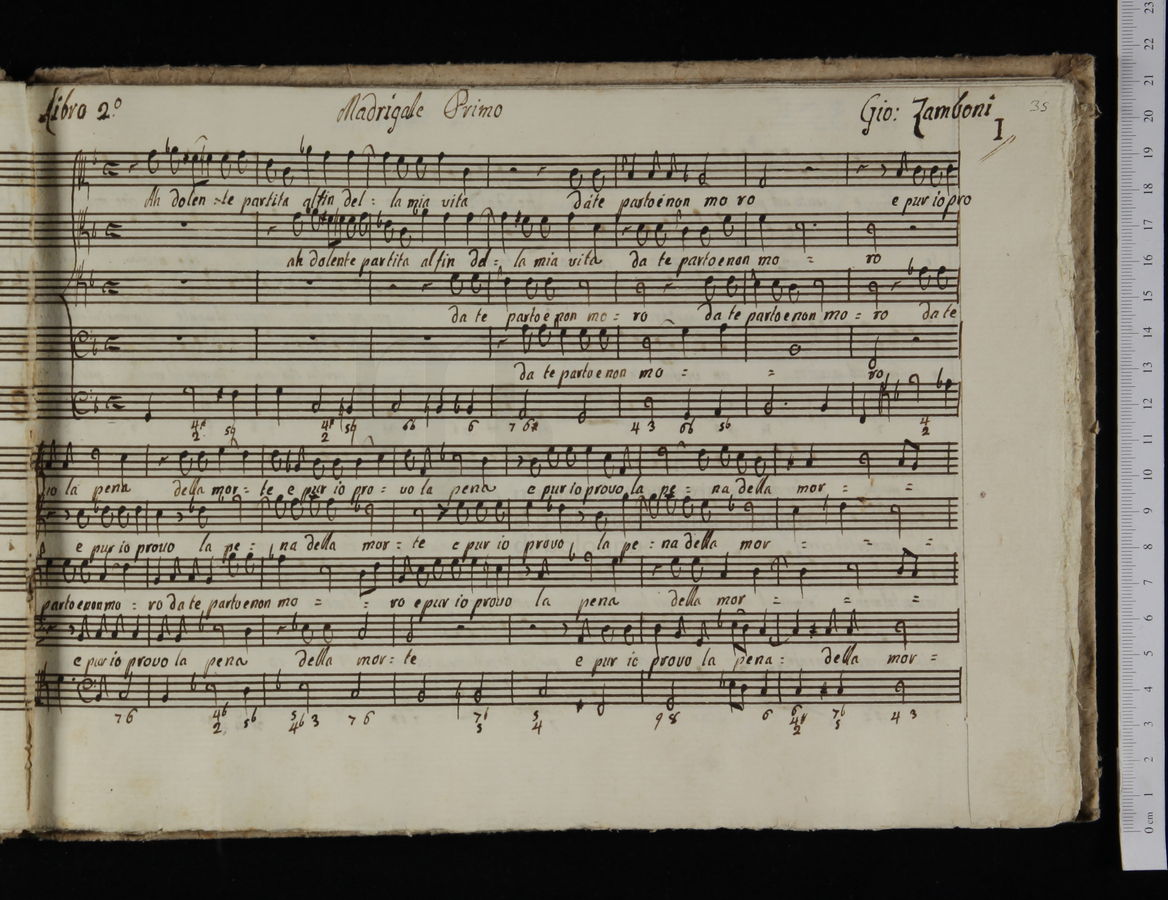 Libro 2º Madrigale Primo Gio: Zamboni 35
I
Ah dolen-te partita alfin del: la mia vita da te parto e non mo ro e pur io pro
ah dolente partita alfin del: la mia vita da te parto e non mo = ro
da te parto e non mo: ro da te parto e non mo = ro da te
da te parto e non mo = = ro
4# 2 5♮ 4# 2 5♮ 6b 6 7 6# 4 3 6b 5b 4 2
uo la pena della mor: te e pur io pro: uo la pena e pur io prouo la pe: na della mor = =
e pur io prouo la pe: na della mor: te e pur io prouo la pe: na della mor = = =
parto e non mo: ro da te parto e non mo = = ro e pur io prouo la pena della mor = = =
e pur io prouo la pena della mor: te e pur io prouo la pena: della mor =
7 6 4b 2 5b 5 4b 3 7 6 7b 5 5 4 9 8 6 6 4# 2 7b 5 4 3
0 cm 1 2 3 4 5 6 7 8 9 10 11 12 13 14 15 16 17 18 19 20 21 22 23